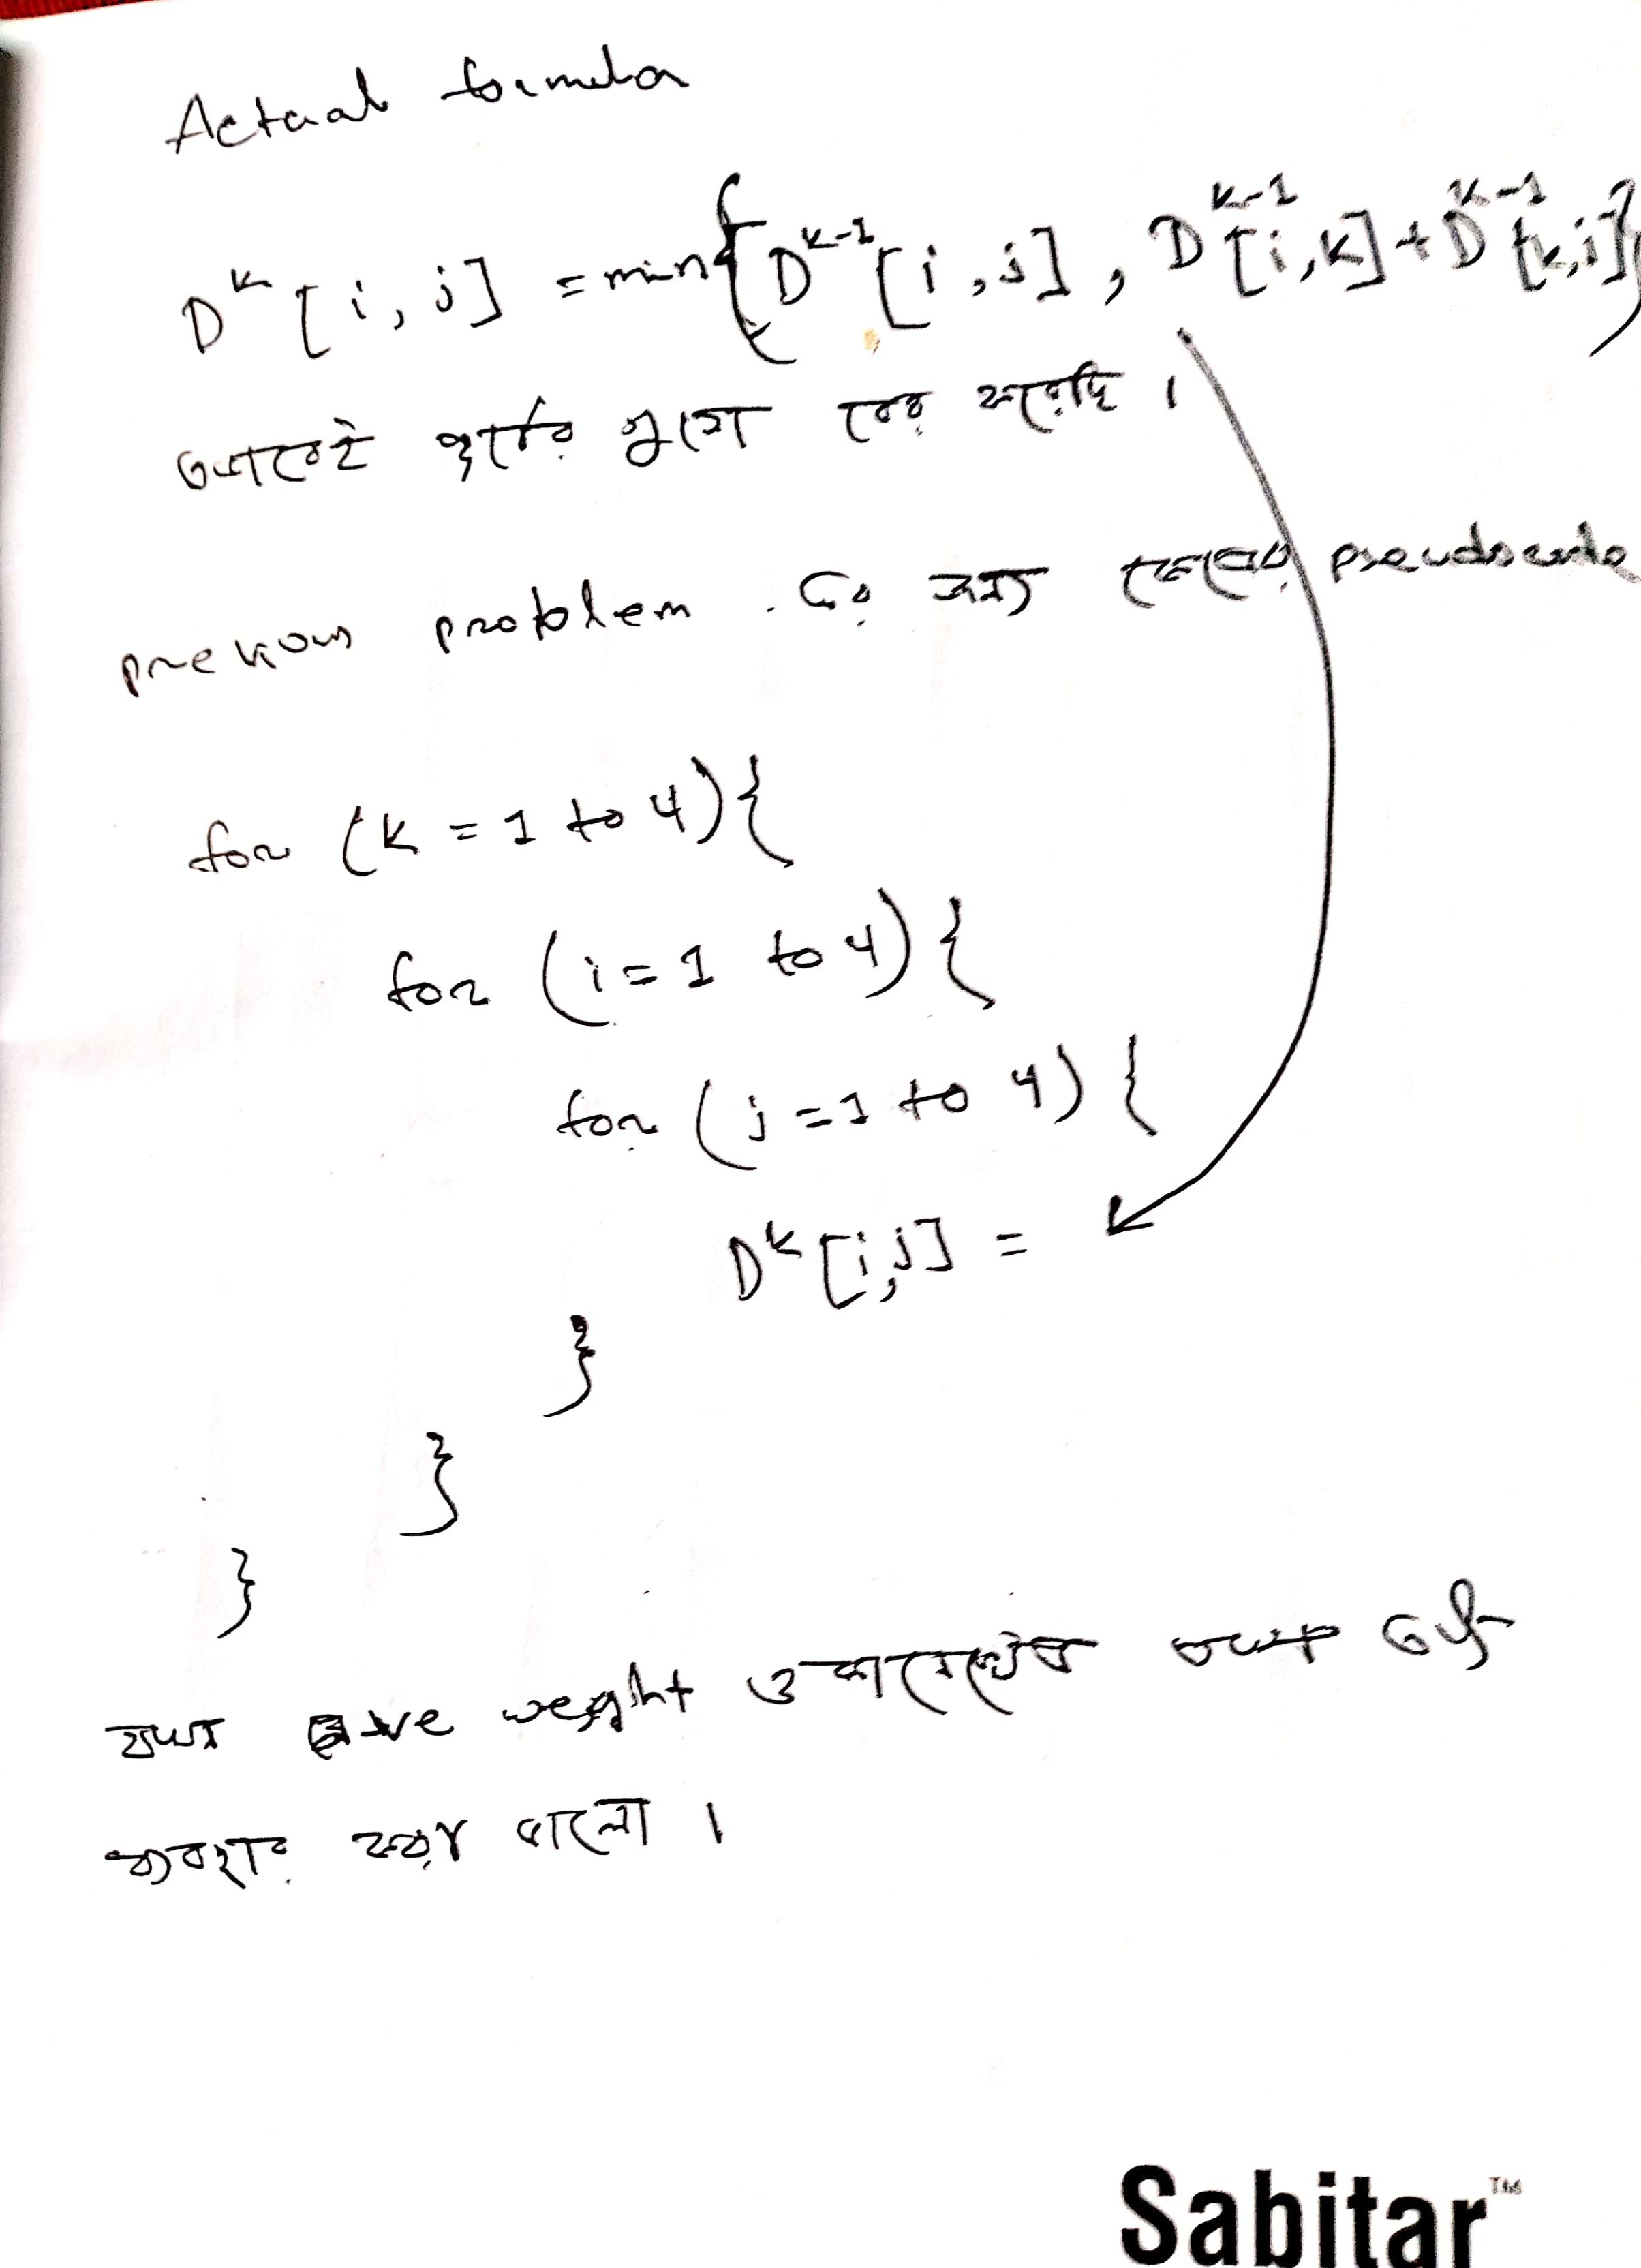 Actual formula
D^k [i, j] = min{D^k-1 [i, j], D^k-1 [i, k] + D^k-1 [k, j]}
এভাবেই বের করেছি।
previous problem এর জন্য pseudocode
for (k = 1 to 4){
for (i = 1 to 4){
for (j = 1 to 4) {
D^k [i, j] =
}
}
}
-ve weight
ব্যবহার করা ভালো।
Sabitar™